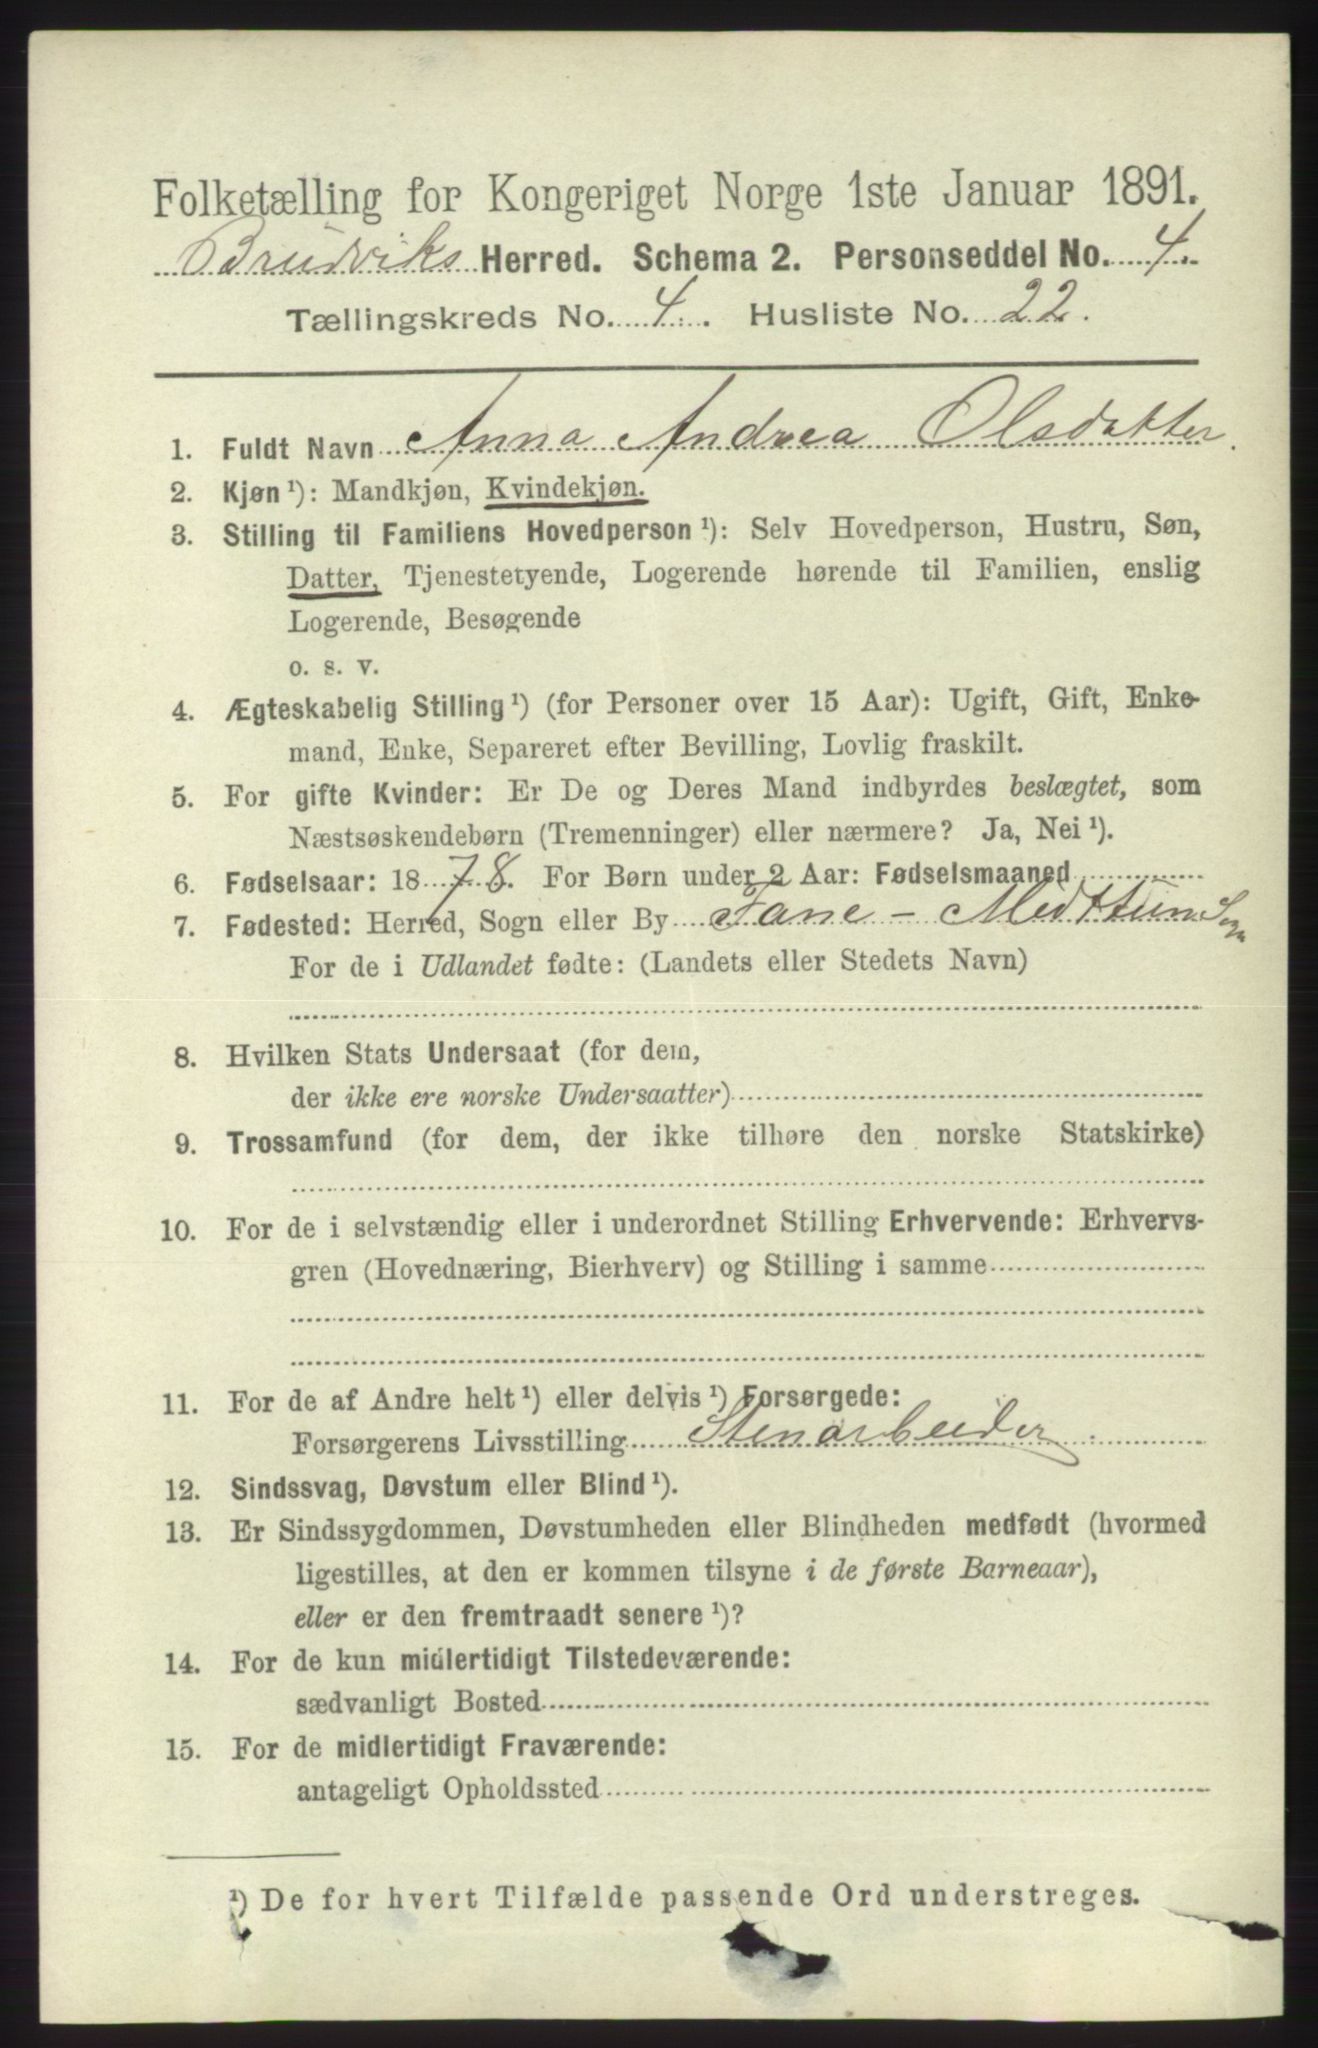 Folketælling for Kongeriget Norge 1ste Januar 1891.
Brudviks Herred. Schema 2. Personseddel No. 4.
Tællingskreds No. 4. Husliste No. 22.
1. Fuldt Navn Anna Andrea Olsdatter.
2. Kjøn ¹): Mandkjøn, Kvindekjøn.
3. Stilling til Familiens Hovedperson ¹): Selv Hovedperson, Hustru, Søn,
Datter, Tjenestetyende, Logerende hørende til Familien, enslig
Logerende, Besøgende
o. s. v.
4. Ægteskabelig Stilling ¹) (for Personer over 15 Aar): Ugift, Gift, Enke-
mand, Enke, Separeret efter Bevilling, Lovlig fraskilt.
5. For gifte Kvinder: Er De og Deres Mand indbyrdes beslægtet, som
Næstsøskendebørn (Tremenninger) eller nærmere? Ja, Nei ¹).
6. Fødselsaar: 1878. For Børn under 2 Aar: Fødselsmaaned
7. Fødested: Herred, Sogn eller By Fane - Midttun Sogn
For de i Udlandet fødte: (Landets eller Stedets Navn)
8. Hvilken Stats Undersaat (for dem,
der ikke ere norske Undersaatter)
9. Trossamfund (for dem, der ikke tilhøre den norske Statskirke)
10. For de i selvstændig eller i underordnet Stilling Erhvervende: Erhvervs-
gren (Hovednæring, Bierhverv) og Stilling i samme
11. For de af Andre helt ¹) eller delvis ¹) Forsørgede:
Forsørgerens Livsstilling Stenarbeider.
12. Sindssvag, Døvstum eller Blind ¹).
13. Er Sindssygdommen, Døvstumheden eller Blindheden medfødt (hvormed
ligestilles, at den er kommen tilsyne i de første Barneaar),
eller er den fremtraadt senere ¹)?
14. For de kun midlertidigt Tilstedeværende:
sædvanligt Bosted
15. For de midlertidigt Fraværende:
antageligt Opholdssted
¹) De for hvert Tilfælde passende Ord understreges.